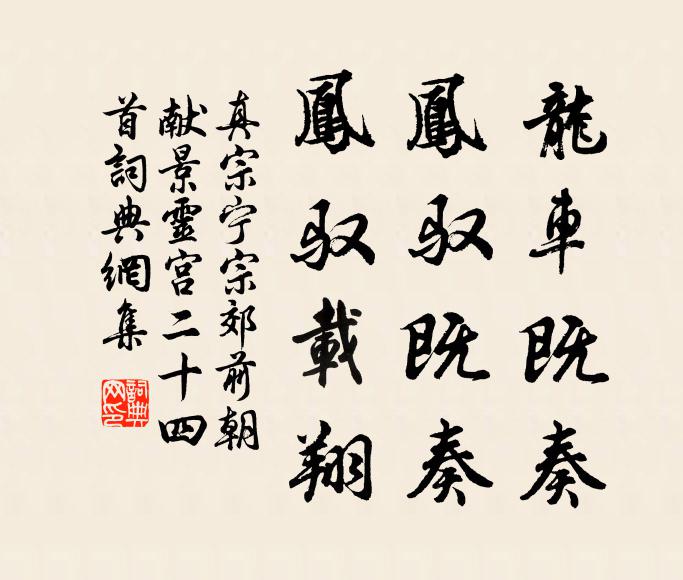 龍車既奏
鳳驭既奏
鳳驭載翔
真宗宁宗郊前朝
献景靈宫二十四
首詞典網集
詞典网印